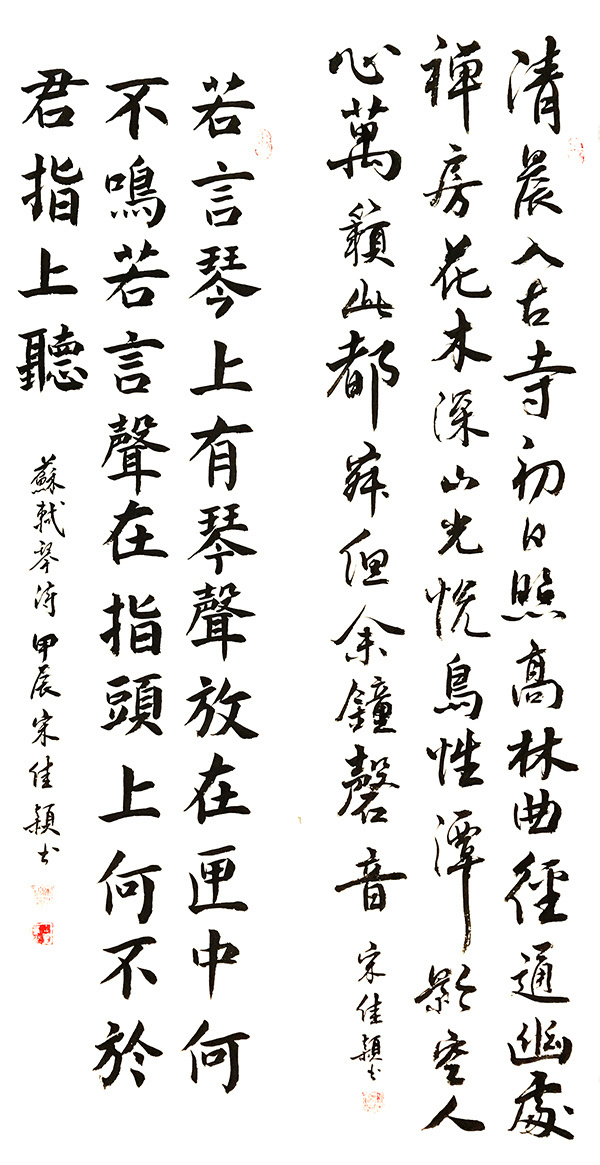 清晨入古寺初日照高林曲徑通幽處
禅房花木深山光悦鳥性潭影空人
心萬籟此都寂但余鐘磬音
宋佳穎书
若言琴上有琴聲放在匣中何
不鳴若言聲在指頭上何不於
君指上聽
蘇軾琴詩甲辰宋佳穎书